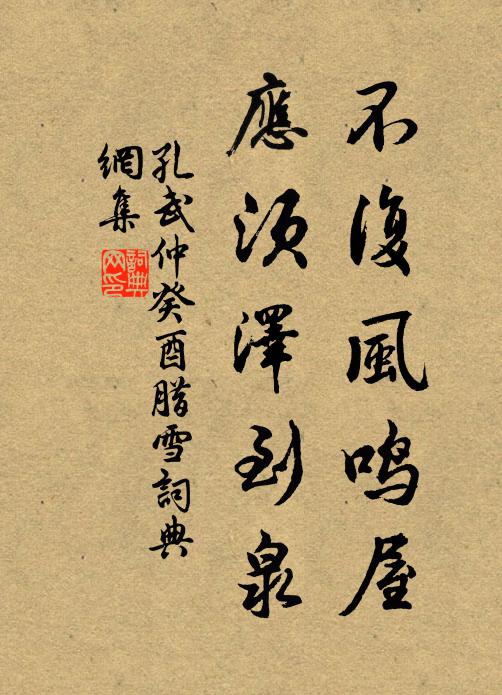 不復風鳴屋
應須澤到泉
孔武仲癸酉腊雪詞典
網集
詞典
網印